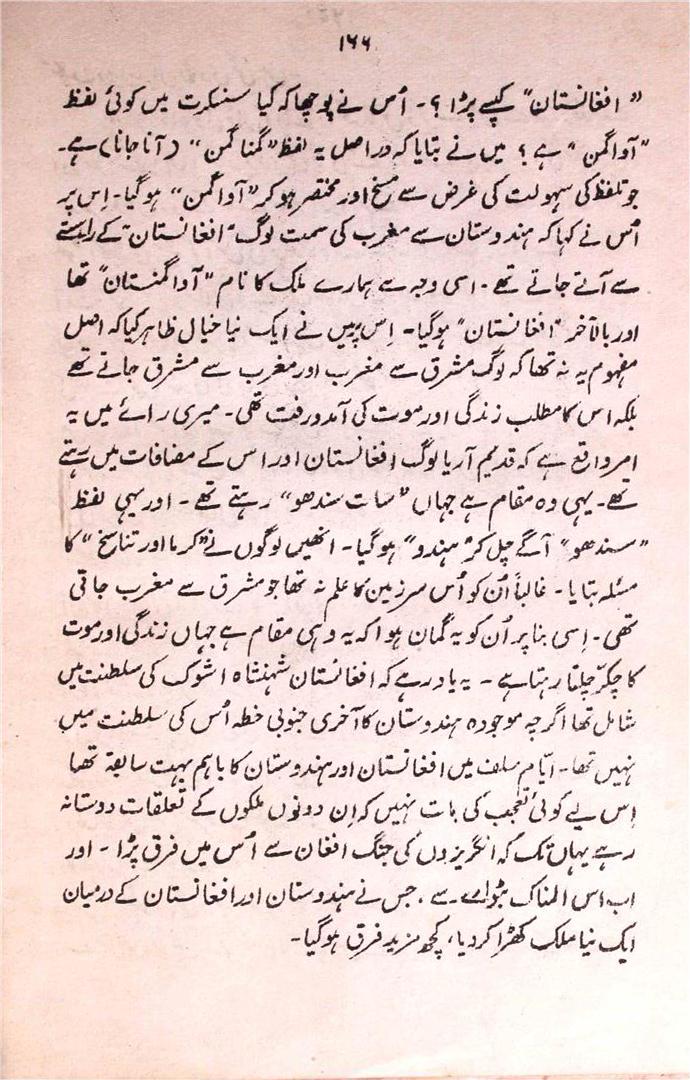 ۱۶۶
”افغانستان“ کیسے پڑا ؟ ۔ اُس نے پوچھا کہ کیا سنسکرت میں کوئی لفظ
”آواگمن“ ہے ؟ میں نے بتایا کہ دراصل یہ لفظ ”گمناگمن“ (آنا جانا) ہے۔
جو تلفظ کی سہولت کی غرض سے مسخ اور مختصر ہو کر ”آواگمن“ ہو گیا۔ اِس پر
اُس نے کہا کہ ہندوستان سے مغرب کی سمت لوگ ”افغانستان“ کے راستے
سے آتے جاتے تھے ۔ اسی وجہ سے ہمارے ملک کا نام ”آواگمنستان“ تھا
اور بالآخر ”افغانستان“ ہو گیا۔ اِس پر میں نے ایک نیا خیال ظاہر کیا کہ اصل
مفہوم یہ نہ تھا کہ لوگ مشرق سے مغرب اور مغرب سے مشرق جاتے تھے
بلکہ اس کا مطلب زندگی اور موت کی آمد و رفت تھی ۔ میری رائے میں یہ
امر واقع ہے کہ قدیم آریا لوگ افغانستان اور اس کے مضافات میں رہتے
تھے۔ یہی وہ مقام ہے جہاں ”سات سندھو“ رہتے تھے ۔ اور یہی لفظ
”سندھو“ آگے چل کر ”ہندو“ ہو گیا۔ انھیں لوگوں نے ”کرما اور تناسخ“ کا
مسئلہ بتایا ۔ غالباً اُن کو اُس سرزمین کا علم نہ تھا جو مشرق سے مغرب جاتی
تھی ۔ اِسی بنا پر اُن کو یہ گمان ہوا کہ یہ وہی مقام ہے جہاں زندگی اور موت
کا چکّر چلتا رہتا ہے ۔ یہ یاد رہے کہ افغانستان شہنشاہ اشوک کی سلطنت میں
شامل تھا اگرچہ موجودہ ہندوستان کا آخری جنوبی خطہ اُس کی سلطنت میں
نہیں تھا ۔ ایّام سلف میں افغانستان اور ہندوستان کا باہم بہت سابقہ تھا
اِس لیے کوئی تعجب کی بات نہیں کہ اِن دونوں ملکوں کے تعلقات دوستانہ
رہے یہاں تک کہ انگریزوں کی جنگ افغان سے اُس میں فرق پڑا ۔ اور
اب اس المناک بٹوارے سے ، جس نے ہندوستان اور افغانستان کے درمیان
ایک نیا ملک کھڑا کر دیا ، کچھ مزید فرق ہو گیا۔